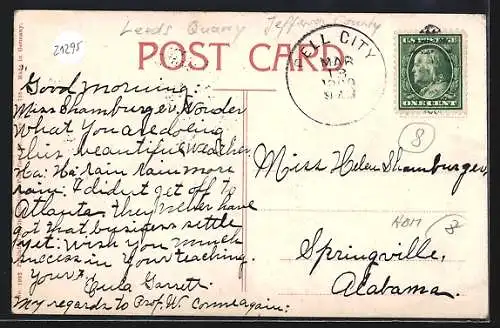 Leeds Quarry Jefferson County
21295
POST CARD
PELL CITY
MAR
U.S. POSTAGE
ONE CENT
Made in Germany.
Good morning:
Miss Shamburger, Wonder
What You are doing
this, beautiful Weather.
Ha: Ha: rain rain more
rain. I didn't get off to
Atlanta. they never have
got that business settle
yet. Wish you much
success in your teaching.
Your F.
Eula Garrett.
My regards to Prof. W. Come again:
8
Miss Helen Shamburger,
Springville,
Alabama.